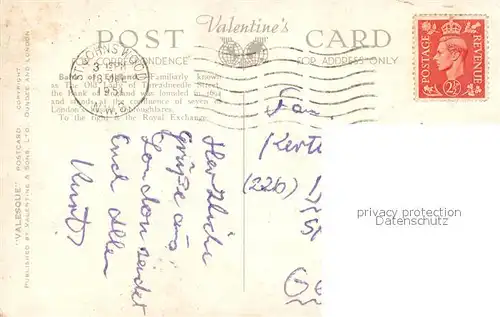 POST Valentine's CARD
CORRESPONDENCE FOR ADDRESS ONLY
ST JOHNS WOOD
3
1951
N.W.8
Bank of England. Familiarly known
as The Old Lady of Threadneedle Street,
the Bank of England was founded in 1694
and stands at the confluence of seven of
London's thoroughfares.
To the right is the Royal Exchange.
"VALESQUE" POSTCARD COPYRIGHT
PUBLISHED BY VALENTINE & SONS, LTD., DUNDEE AND LONDON
Herzliche
Grüße aus
London sendet
Euch allen
Kurt
Fam.
(22b)
POSTAGE REVENUE
2½
privacy protection
Datenschutz